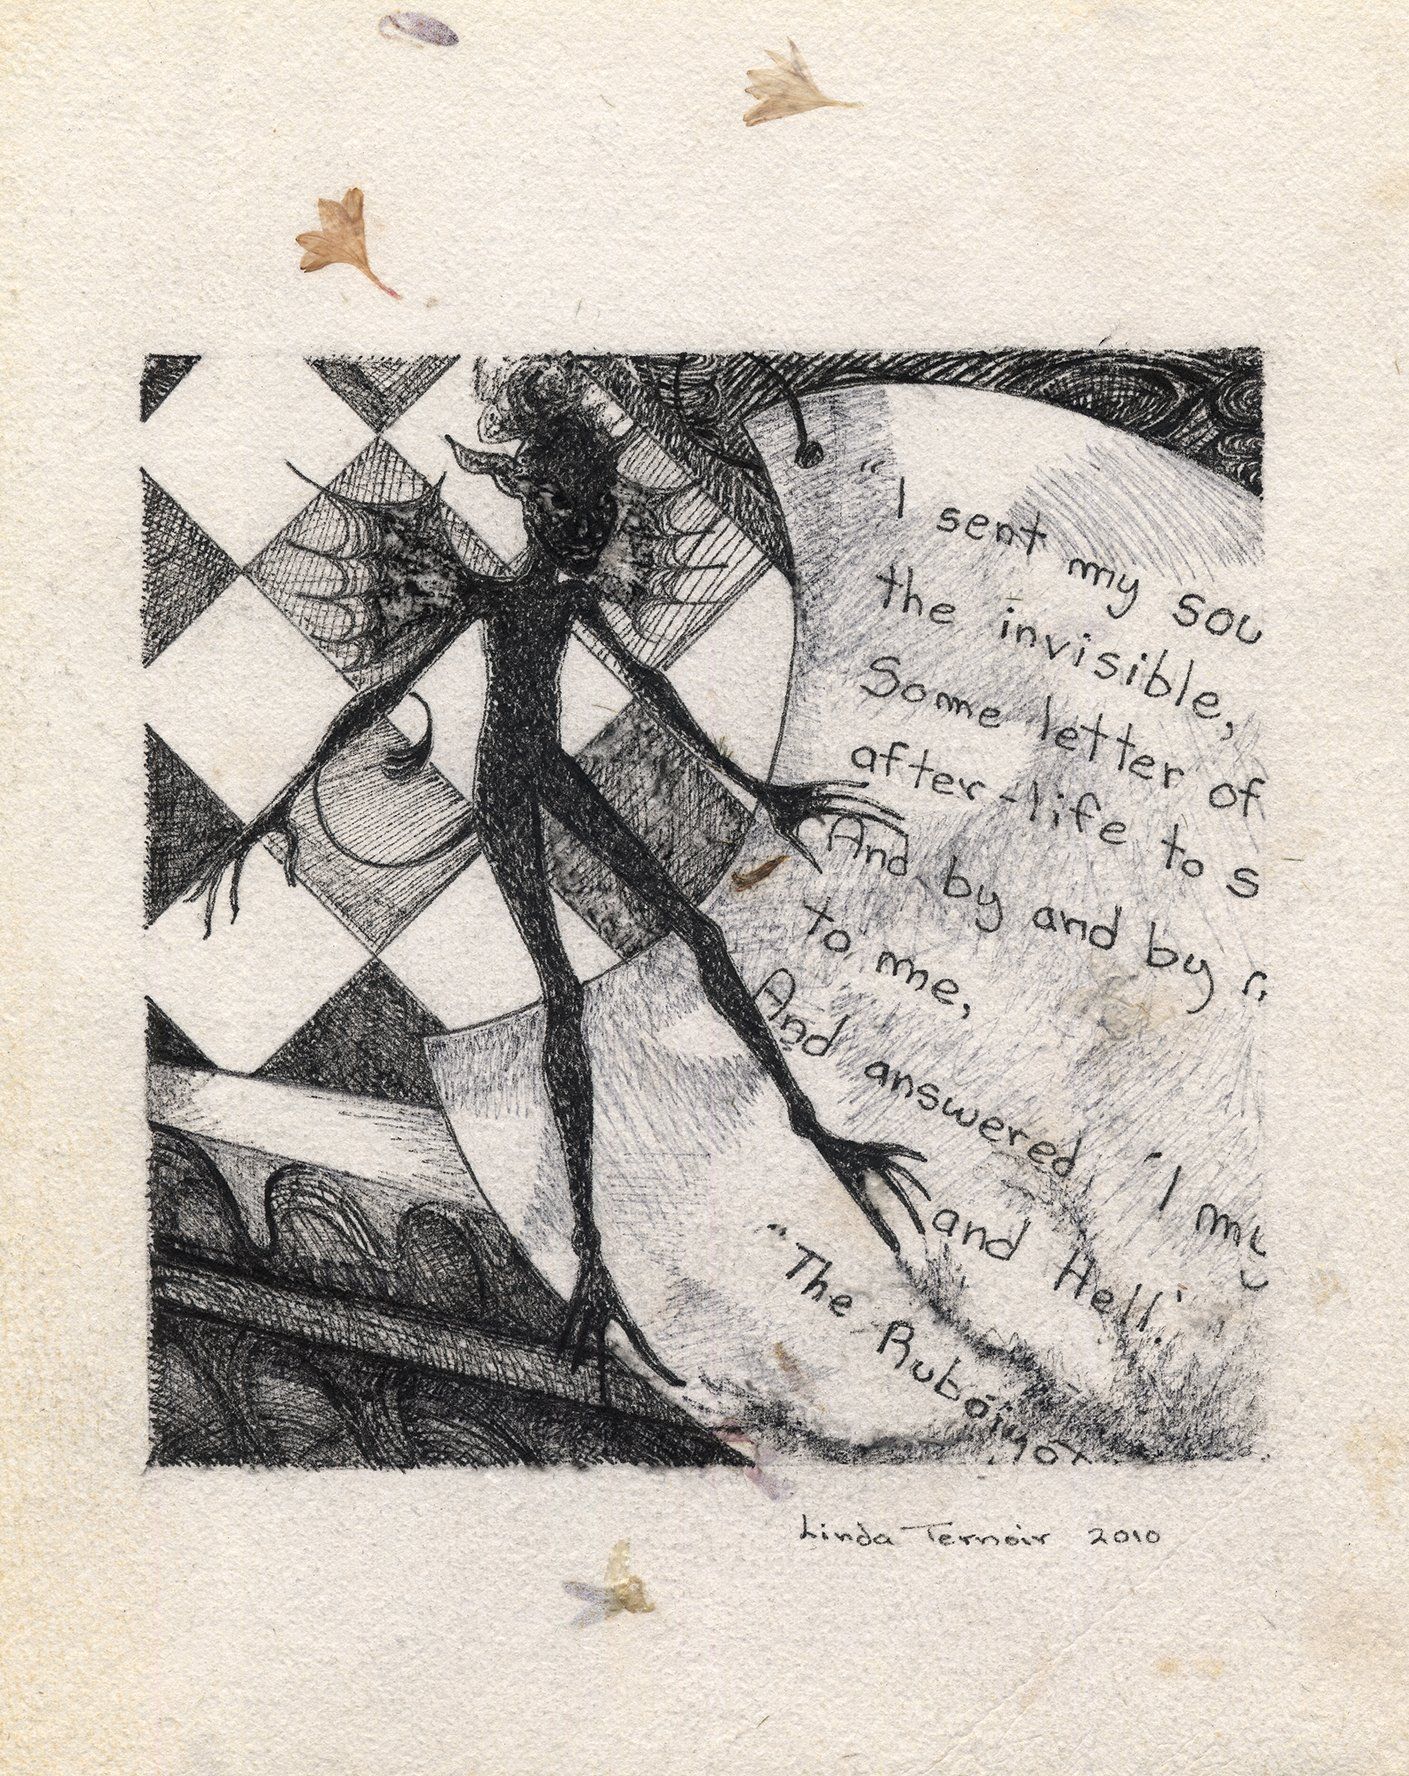 "I sent my sou
the invisible,
Some letter of
after-life to s
And by and by r
to me,
And answered 'I my
and Hell.'
"The Rubáiyat
Linda Ternoir 2010